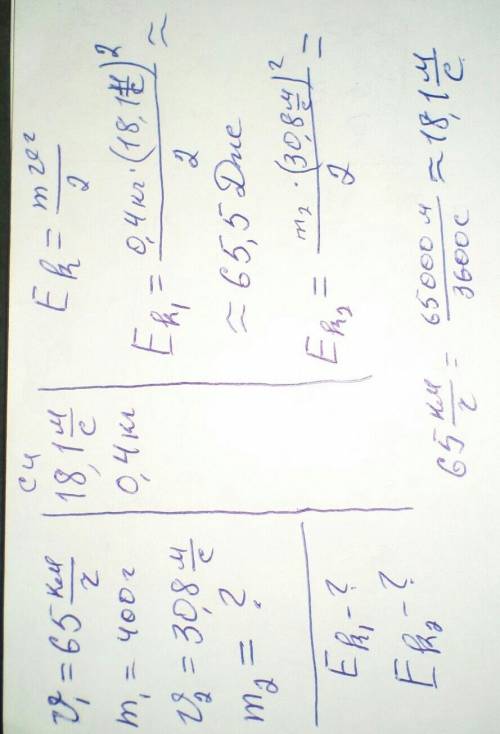 v₁ = 65 км/ч
m₁ = 400 г
v₂ = 30,8 м/с
m₂ = ?
Eк₁ - ?
Eк₂ - ?
СИ
18,1 м/с
0,4 кг
Eк = mv²/2
Eк₁ = 0,4 кг · (18,1 м/с)²/2 ≈
≈ 65,5 Дж
Eк₂ = m₂ · (30,8 м/с)²/2 =
65 км/ч = 65000 м/3600 с ≈ 18,1 м/с